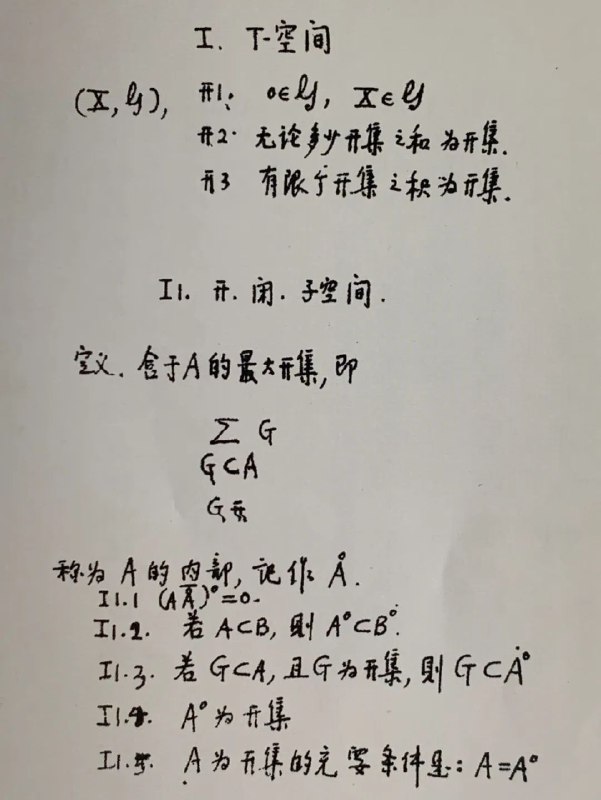 I. T-空间
(X, 𝒢), 开1: 0∈𝒢, X∈𝒢
开2. 无论多少开集之和为开集.
开3 有限个开集之积为开集.
I1. 开. 闭. 子空间.
定义. 含于A的最大开集, 即
∑ G
G⊂A
G开
称为 A 的内部, 记作 Å.
I1.1 (A Ā)°=0.
I1.2. 若 A⊂B, 则 A°⊂B°.
I1.3. 若 G⊂A, 且G为开集, 则 G⊂A°
I1.4. A°为开集
I1.5. A为开集的充要条件是: A=A°